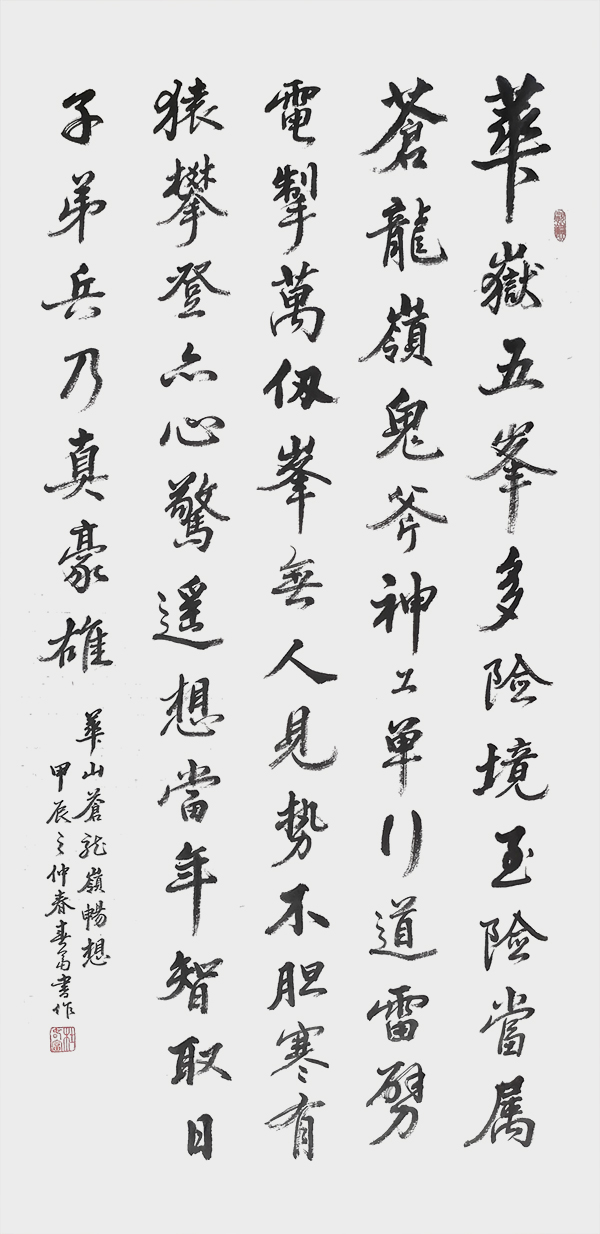 華嶽五峯多險境至險當属
蒼龍嶺鬼斧神工单行道雷劈
電掣萬仞峯無人見势不胆寒有
猿攀登亦心驚遥想當年智取日
子弟兵乃真豪雄
華山蒼龍嶺暢想
甲辰之仲春書作